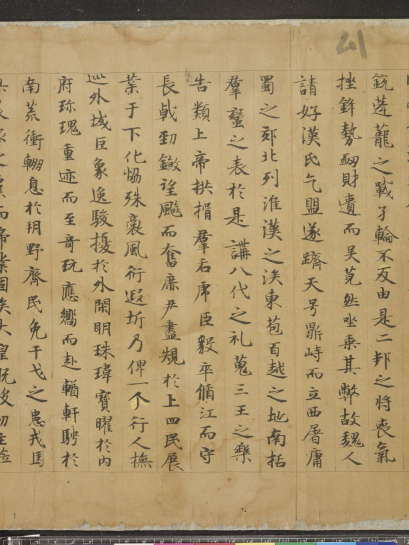 41
銳蓬蘢之戰孑輪不反由是二邦之將喪氣
挫鋒勢衂財遺而吳莞然坐乘其弊故魏人
請好漢氏气盟遂躋天号鼎峙而立西屠庸
蜀之郊北列淮漢之涘東苞百越之地南括
羣蠻之表於是講八代之礼蒐三王之樂
告類上帝拱揖羣后虎臣毅卒循江而守
長戟勁鎩望飈而奮庶尹盡規於上四民展
業于下化協殊裔風衍遐圻乃俾一个行人撫
巡外域巨象逸駿擾於外閑明珠瑋寶曜於內
府珎瑰重迹而至奇玩應嚮而赴輶軒騁於
南荒衝輣息於朔野齊民免干戈之患戎馬
之虞而帝業固矣大皇既没幼主莅